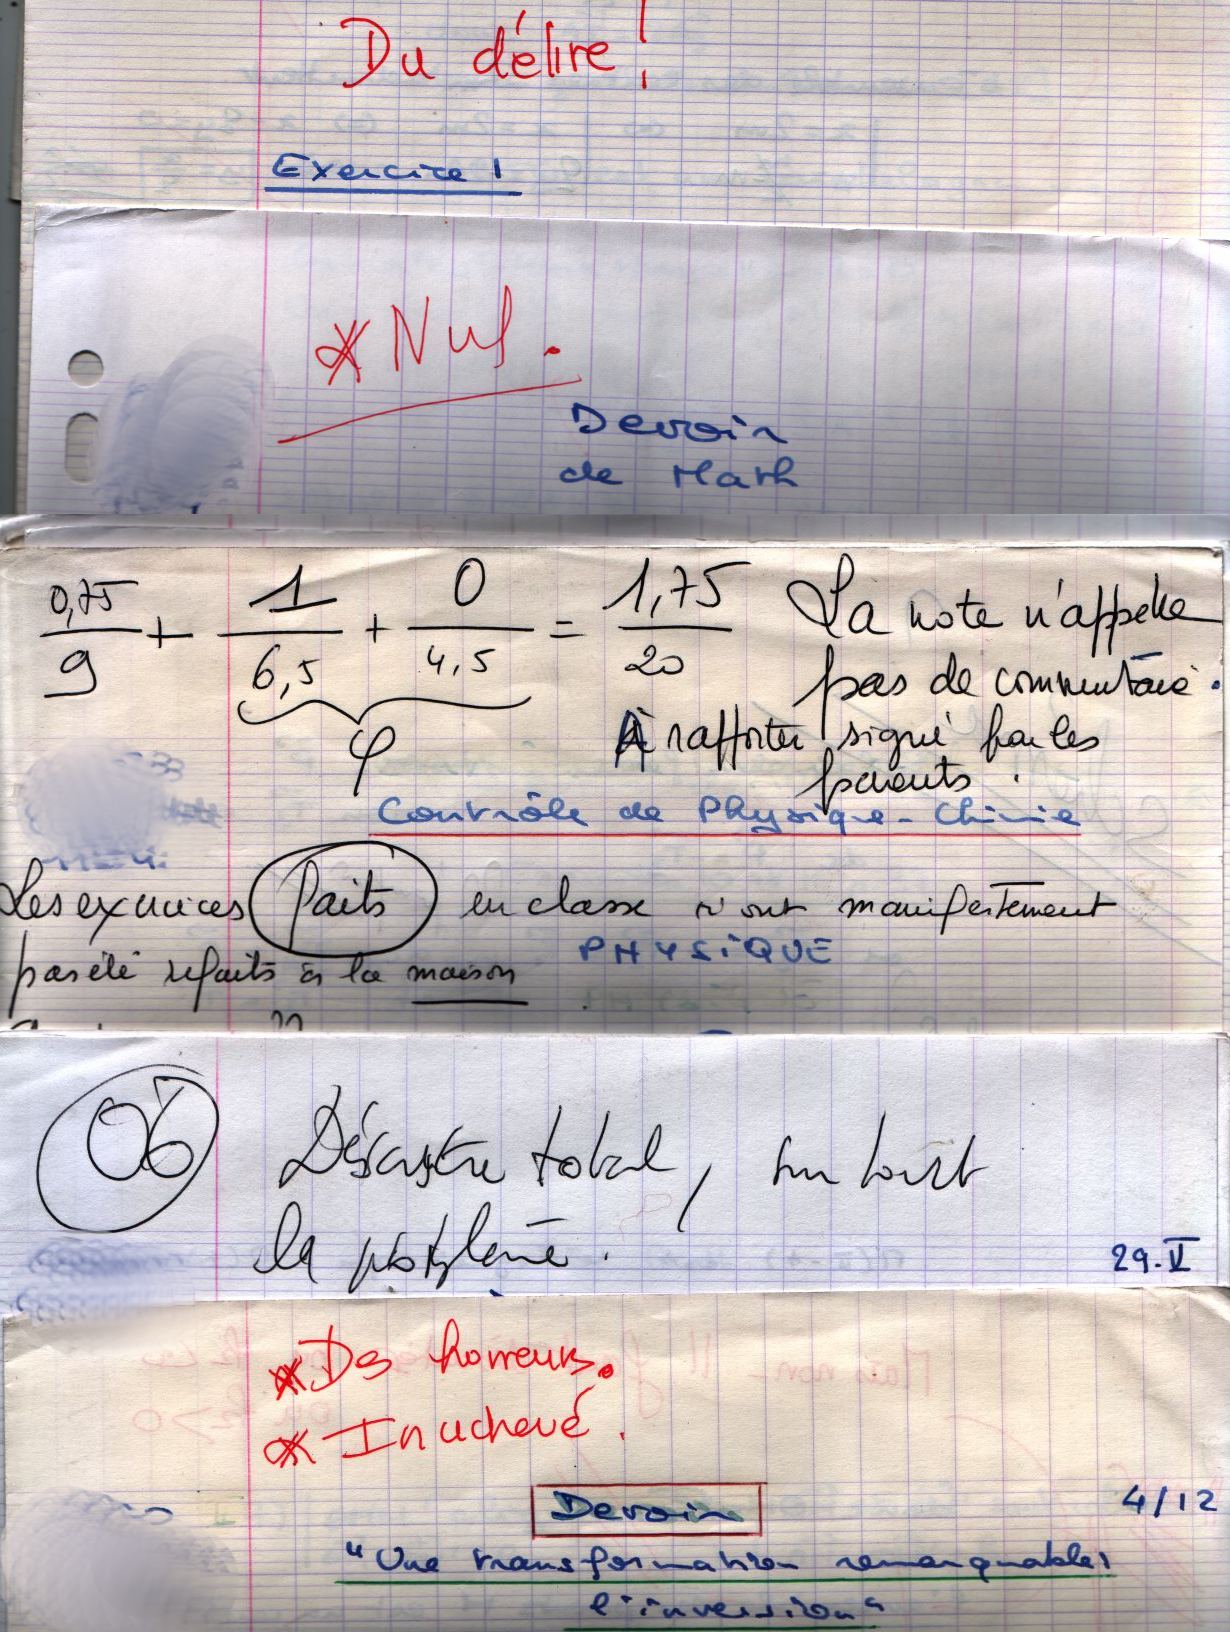 Du délire !
Exercice 1
* Nul.
Devoir
de Math
0,75/9 + 1/6,5 + 0/4,5 = 1,75/20
φ
La note n'appelle
pas de commentaire.
À rapporter signé par les
parents.
Contrôle de Physique-Chimie
Les exercices faits en classe n'ont manifestement
PHYSIQUE
pas été refaits à la maison
06
Désastre total, surtout
la
29.V
* Des horreurs.
* Inachevé.
Devoir
4/12
"Une transformation remarquable:
l'inversion"